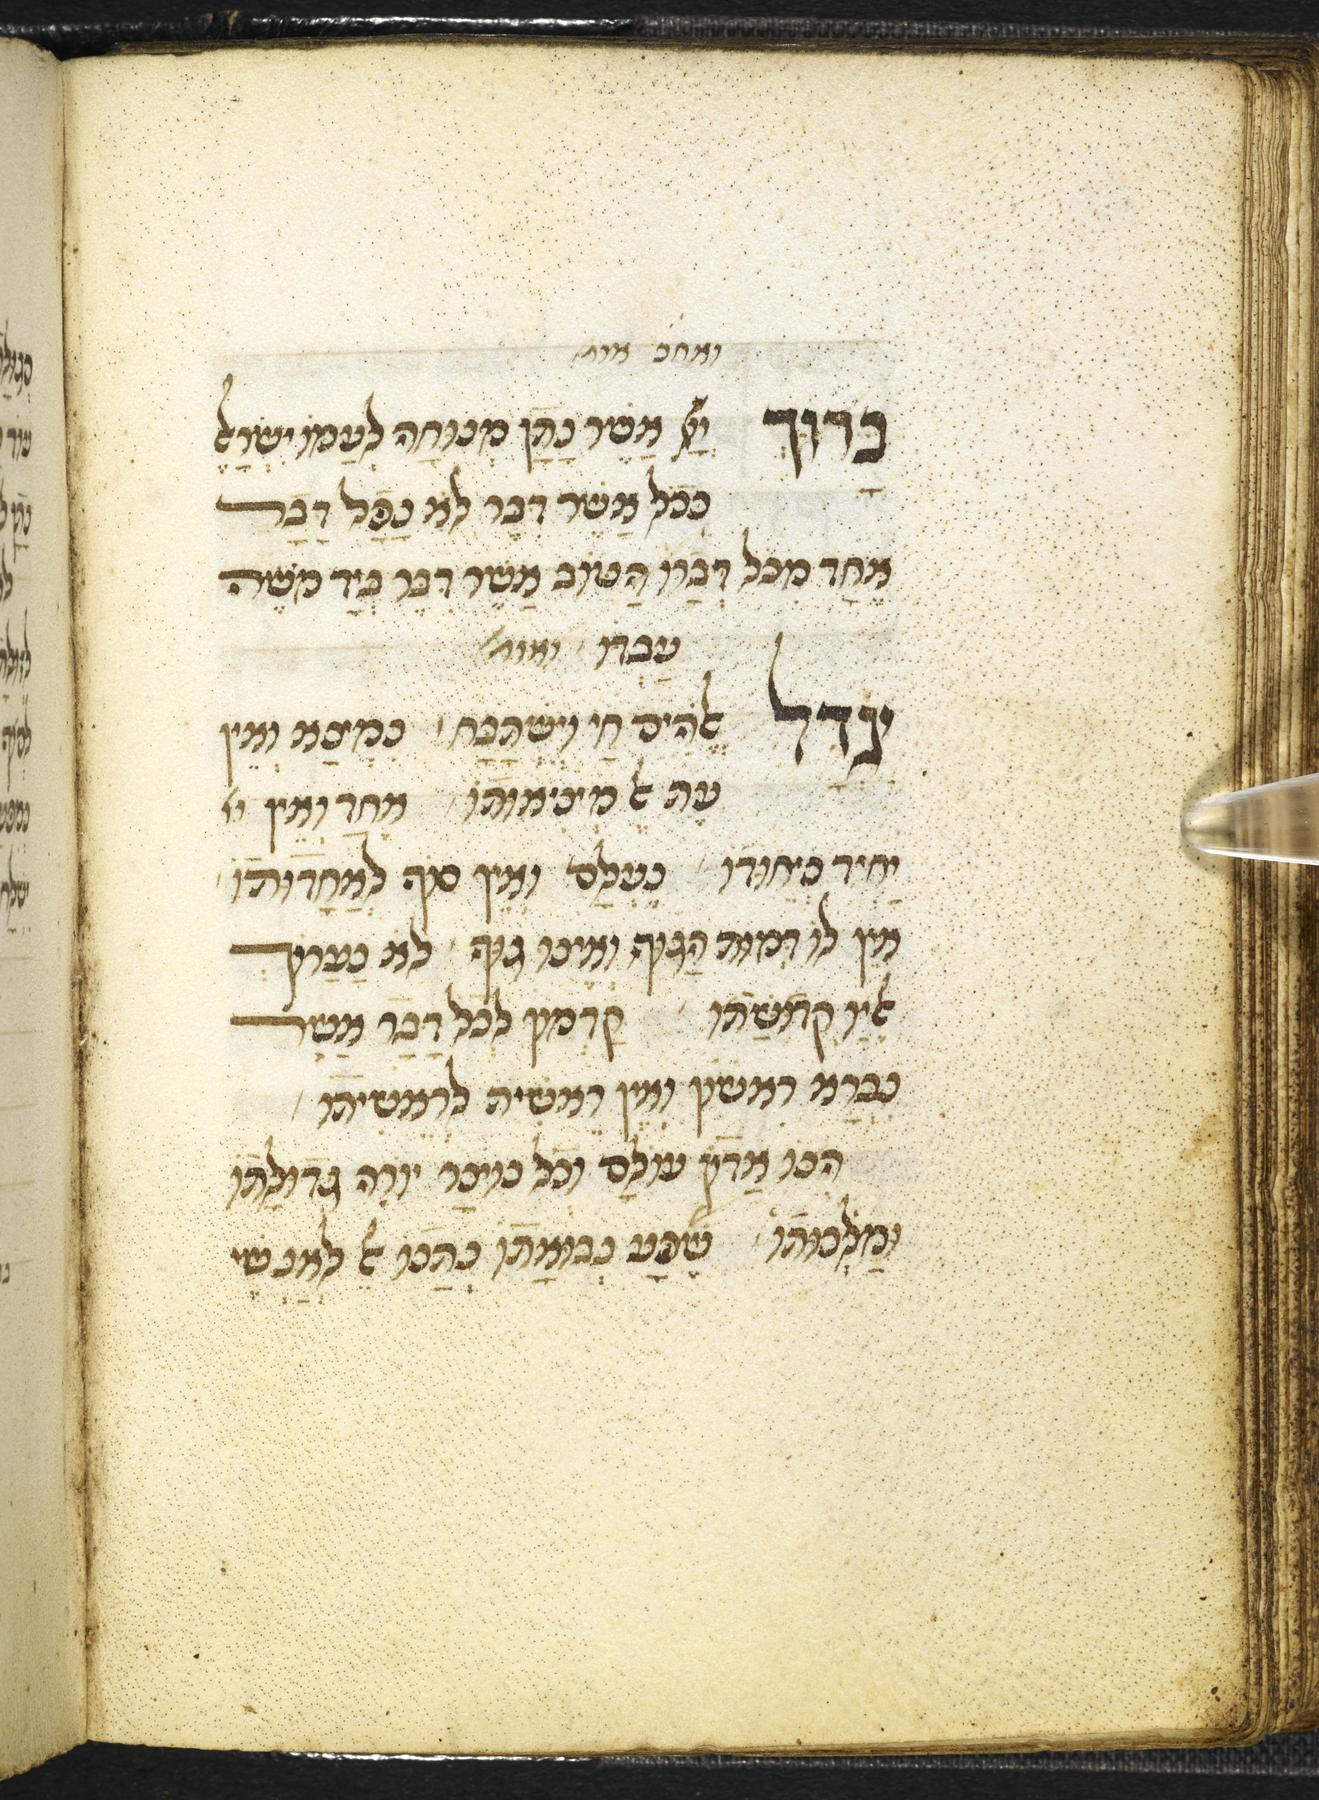 ואחכ אומ׳
בָּרוּךְ יְיָ אֲשֶׁר נָתַן מְנוּחָה לְעַמּוֹ יִשְׂרָאֵל
ככל אֲשֶׁר דִּבֶּר לא נָפַל דָּבָר
אֶחָד מכל דְּבָרוֹ הַטּוֹב אֲשֶׁר דִּבֶּר בְּיַד משֶׁה
עַבְדּוֹ ואומ׳
יִגְדַּל אֱלֹהִים חַי וְיִשְׁתַּבַּח נִמְצָא וְאֵין
עֵת אֶל מְצִיאוּתוֹ אחד וְאֵין
יָחִיד כְּיִחוּדוֹ נֶעְלָם וְאֵין סוֹף לְאַחְדוּתוֹ
אין לו דְמוּת הַגּוּף ואינו גוּף לא נַעֲרוֹךְ
אֵלָיו קְדֻשָּׁתוֹ קַדְמוֹן לְכָל דָּבָר אֲשֶׁר
נִבְרָא ראשון וְאֵין רֵאשִׁית לְרֵאשִׁיתוֹ
הִנּוֹ אֲדוֹן עוֹלָם וכל נוֹצָר יוֹרֶה גְדוּלָתוֹ
וּמַלְכוּתוֹ שֶׁפַע נְבוּאָתוֹ נְתָנוֹ אֶל לְאַנְשֵׁי